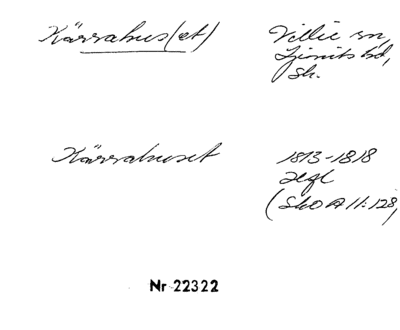 Kärrahus(et) Villie sn,
Ljunits hd,
Sk.
Kärrahuset 1813-1818
Hfl
(SkO A 11:128,
Nr 22322